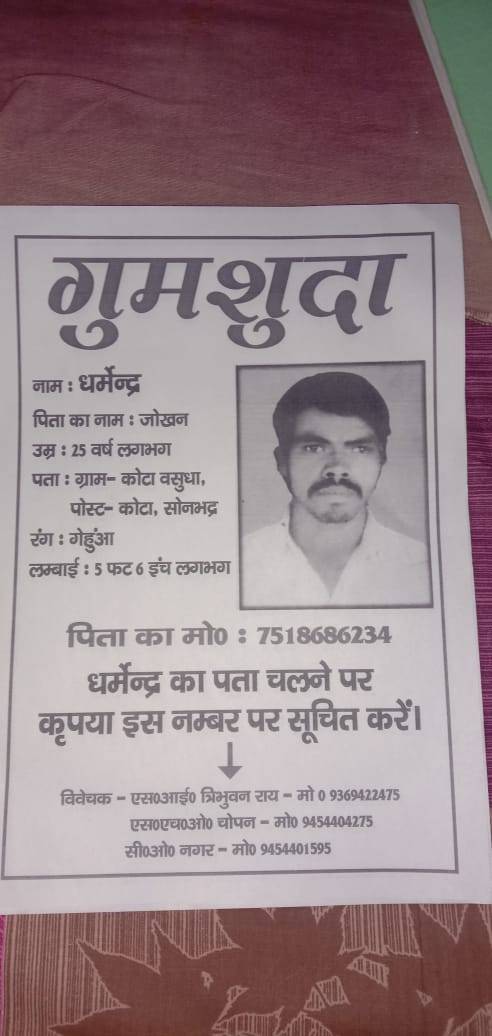 गुमशुदा
नाम : धर्मेन्द्र
पिता का नाम : जोखन
उम्र : 25 वर्ष लगभग
पता : ग्राम- कोटा वसुधा,
पोस्ट- कोटा, सोनभद्र
रंग : गेहुंआ
लम्बाई : 5 फट 6 इंच लगभग
पिता का मो0 : 7518686234
धर्मेन्द्र का पता चलने पर
कृपया इस नम्बर पर सूचित करें।
विवेचक - एस0आई0 त्रिभुवन राय - मो 0 9369422475
एस0एच0ओ0 चोपन - मो0 9454404275
सी0ओ0 नगर - मो0 9454401595